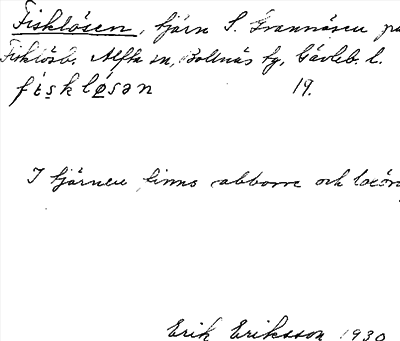 Fisklösen, tjärn S. Grannäsen på
Fisklösb. Alfta sn, Bollnäs tg, Gävleb. l.
fisklø̄sən 19.
I tjärnen finns abborre och
Erik Eriksson 1930